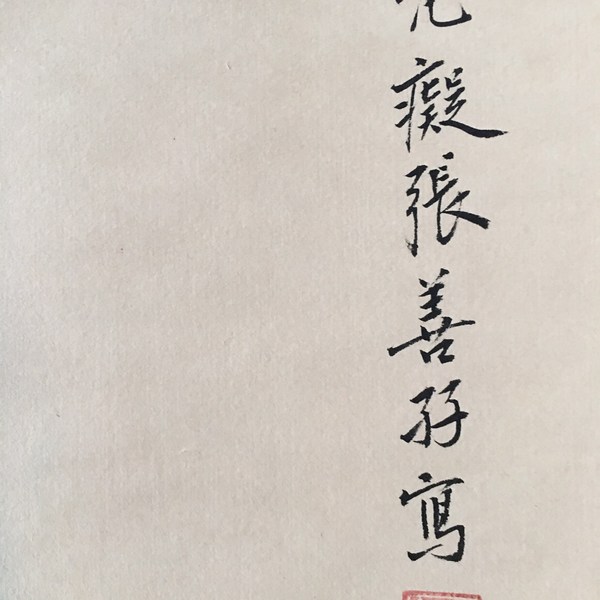 癡張善孖寫